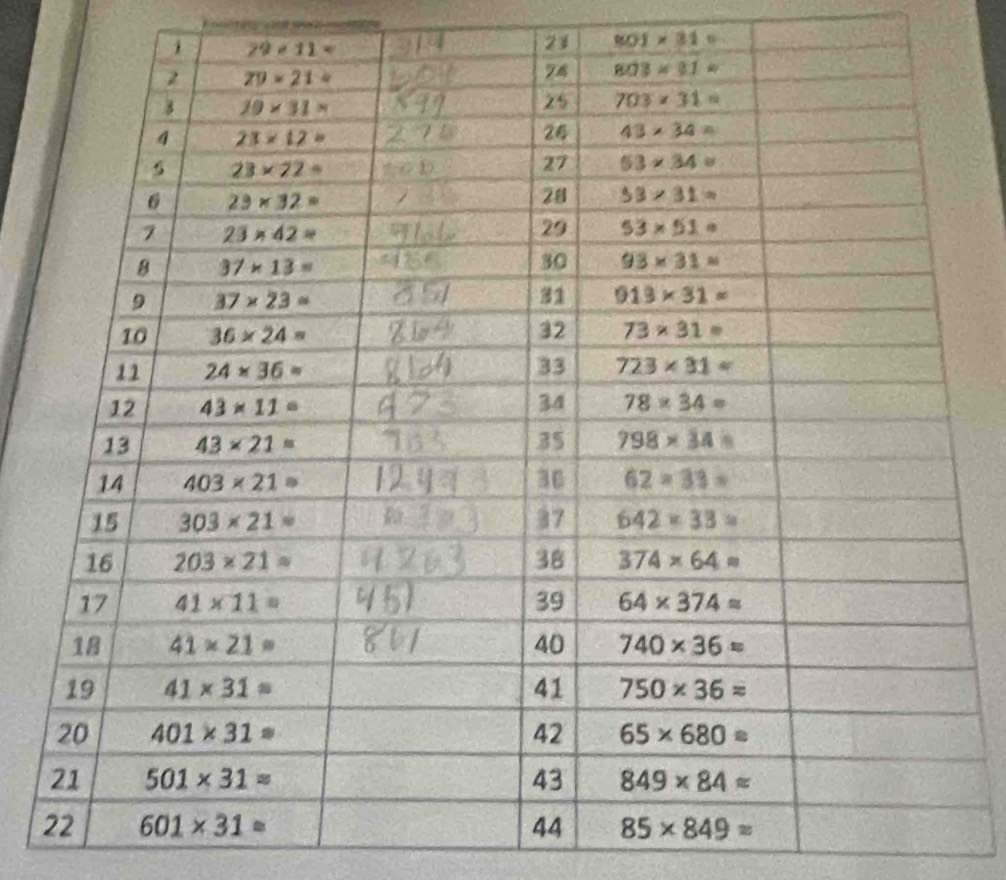 1 29 × 11 = 319 23 801 × 31 =
2 29 × 21 = 24 803 × 31 =
3 29 × 31 = 899 25 703 × 31 =
4 23 × 12 = 276 26 43 × 34 =
5 23 × 22 = 27 53 × 34 =
6 23 × 32 = 28 53 × 31 =
7 23 × 42 = 966 29 53 × 51 =
8 37 × 13 = 30 93 × 31 =
9 37 × 23 = 851 31 913 × 31 =
10 36 × 24 = 864 32 73 × 31 =
11 24 × 36 = 864 33 723 × 31 =
12 43 × 11 = 473 34 78 × 34 =
13 43 × 21 = 35 798 × 34 =
14 403 × 21 = 36 62 × 33 =
15 303 × 21 = 37 642 × 33 =
16 203 × 21 = 4263 38 374 × 64 =
17 41 × 11 = 451 39 64 × 374 =
18 41 × 21 = 861 40 740 × 36 =
19 41 × 31 = 41 750 × 36 =
20 401 × 31 = 42 65 × 680 =
21 501 × 31 = 43 849 × 84 =
22 601 × 31 = 44 85 × 849 =